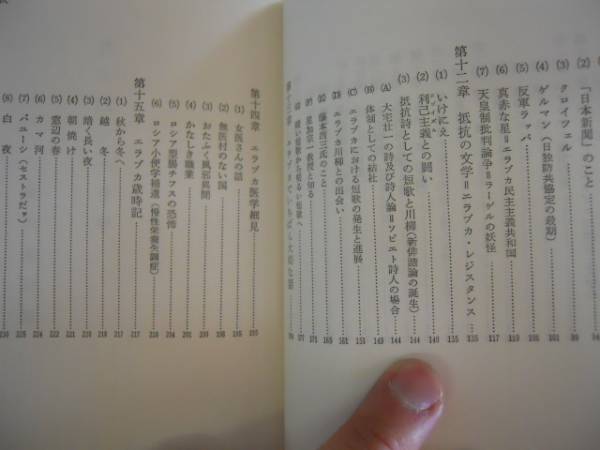 (2) 「日本新聞」のこと 94
(3) クロイツェル 99
(4) ゲルマン(日独防共協定の最期) 101
(5) 反軍ラッパ
(6) 真赤な星=エラブカ民主主義共和国
(7) 天皇制批判論争=ラーゲルの妖怪 117
第十二章 抵抗の文学=エラブカ・レジスタンス 135
(1) いけにえ
(2) 利己主義との闘い
(3) 抵抗詩としての短歌と川柳(新俳諧論の誕生) 144
(A) 大宅壮一の詩及び詩人論=ソビエト詩人の場合 144
(B) 体制としての結社 149
(C) エラブカにおける短歌の発生と進展 151
エラブカ川柳との出会い 161
藤本西三氏のこと
星加宗一教授と知る 171
暗い短歌から明るい短歌へ 177
第十四章 エラブカ医学細見 195
(1) 女医さんの話 195
(2) 無医村のない国
(3) おたふく風邪異聞
(4) かなしき職業
(5) ロシア型発チフスの恐怖 204
(6) ロシア小便学補遺(慢性栄養失調症)
第十五章 エラブカ歳時記 217
(1) 秋から冬へ 217
(2) 越冬 218
(3) 暗く長い夜 219
(4) 朝焼け 221
(5) 窓辺の春
(6) カマ河 224
(7) パユーシ(セストラだァ)
(8) 白夜 230